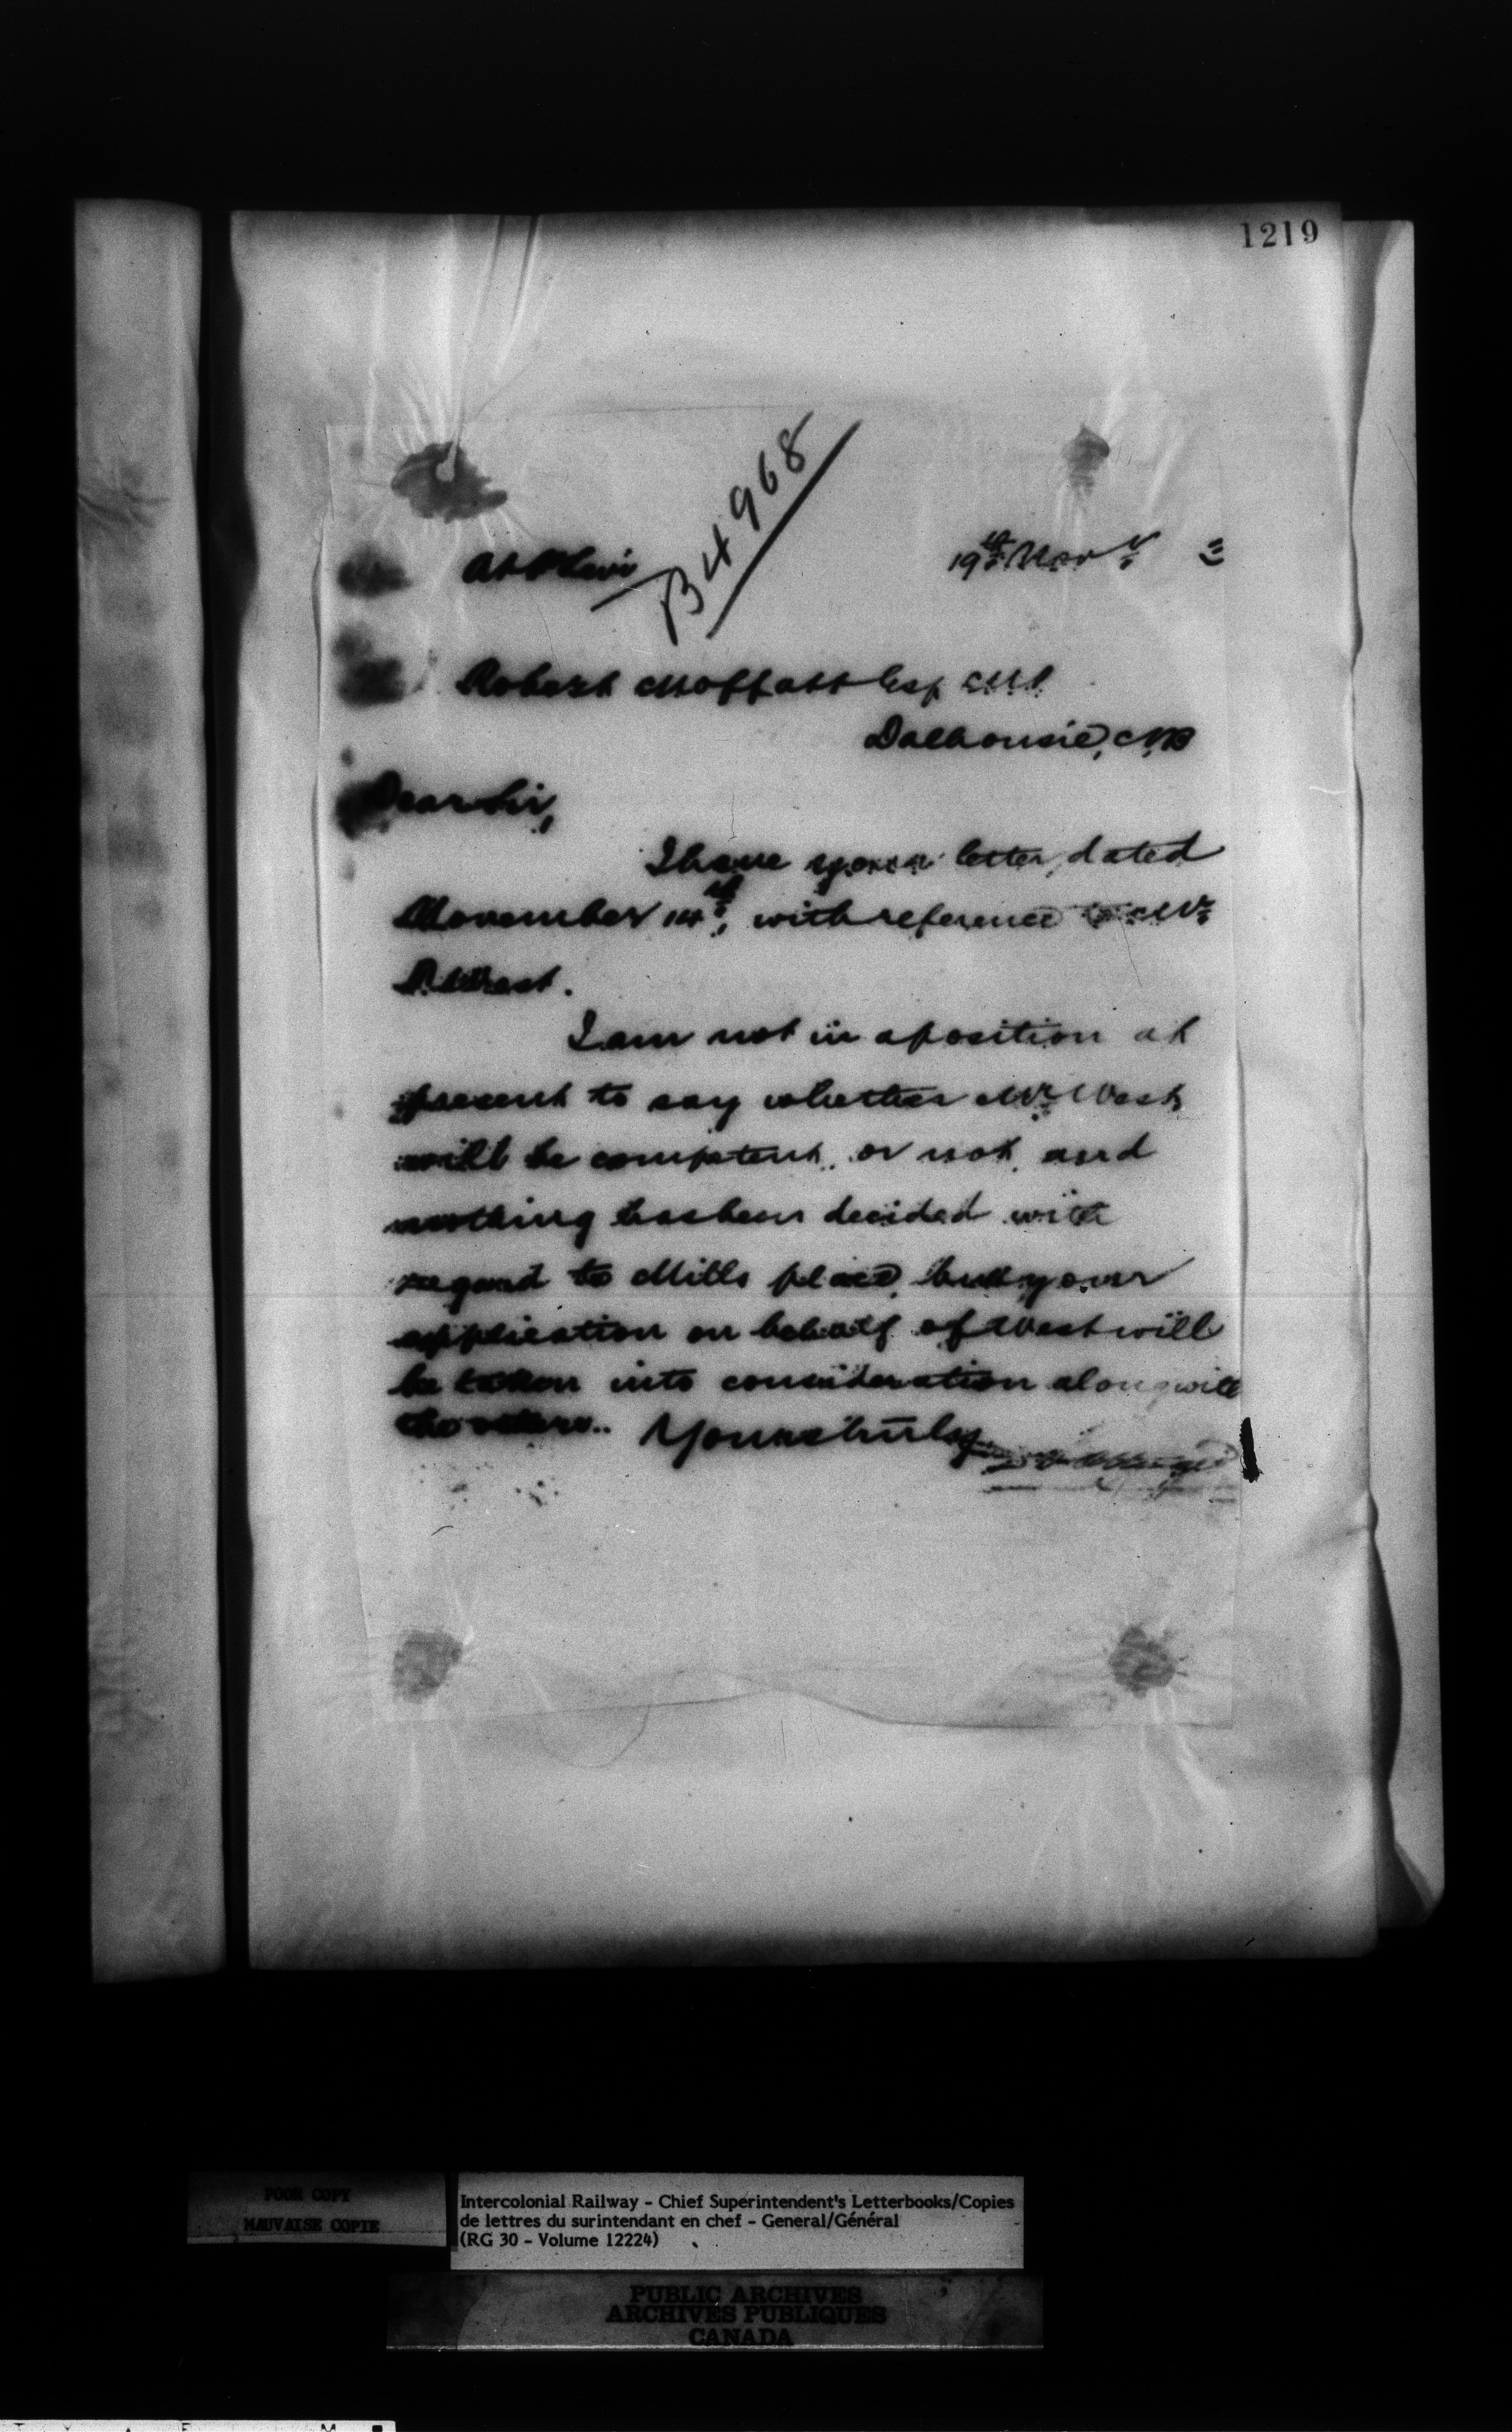 1219
B4968
At P Levi 19th Novr 3
Robert Moffatt Esq M.P.
Dalhousie, N.B
Dear Sir,
I have your letter, dated
November 14th, with reference to Mr
West.
I am not in a position at
present to say whether Mr West
will be competent or not, and
nothing has been decided with
regard to Mills place, but your
application on behalf of West will
be taken into consideration along with
the others. Yours truly
POOR COPY
MAUVAISE COPIE
Intercolonial Railway - Chief Superintendent's Letterbooks/Copies
de lettres du surintendant en chef - General/Général
(RG 30 - Volume 12224)
PUBLIC ARCHIVES
ARCHIVES PUBLIQUES
CANADA